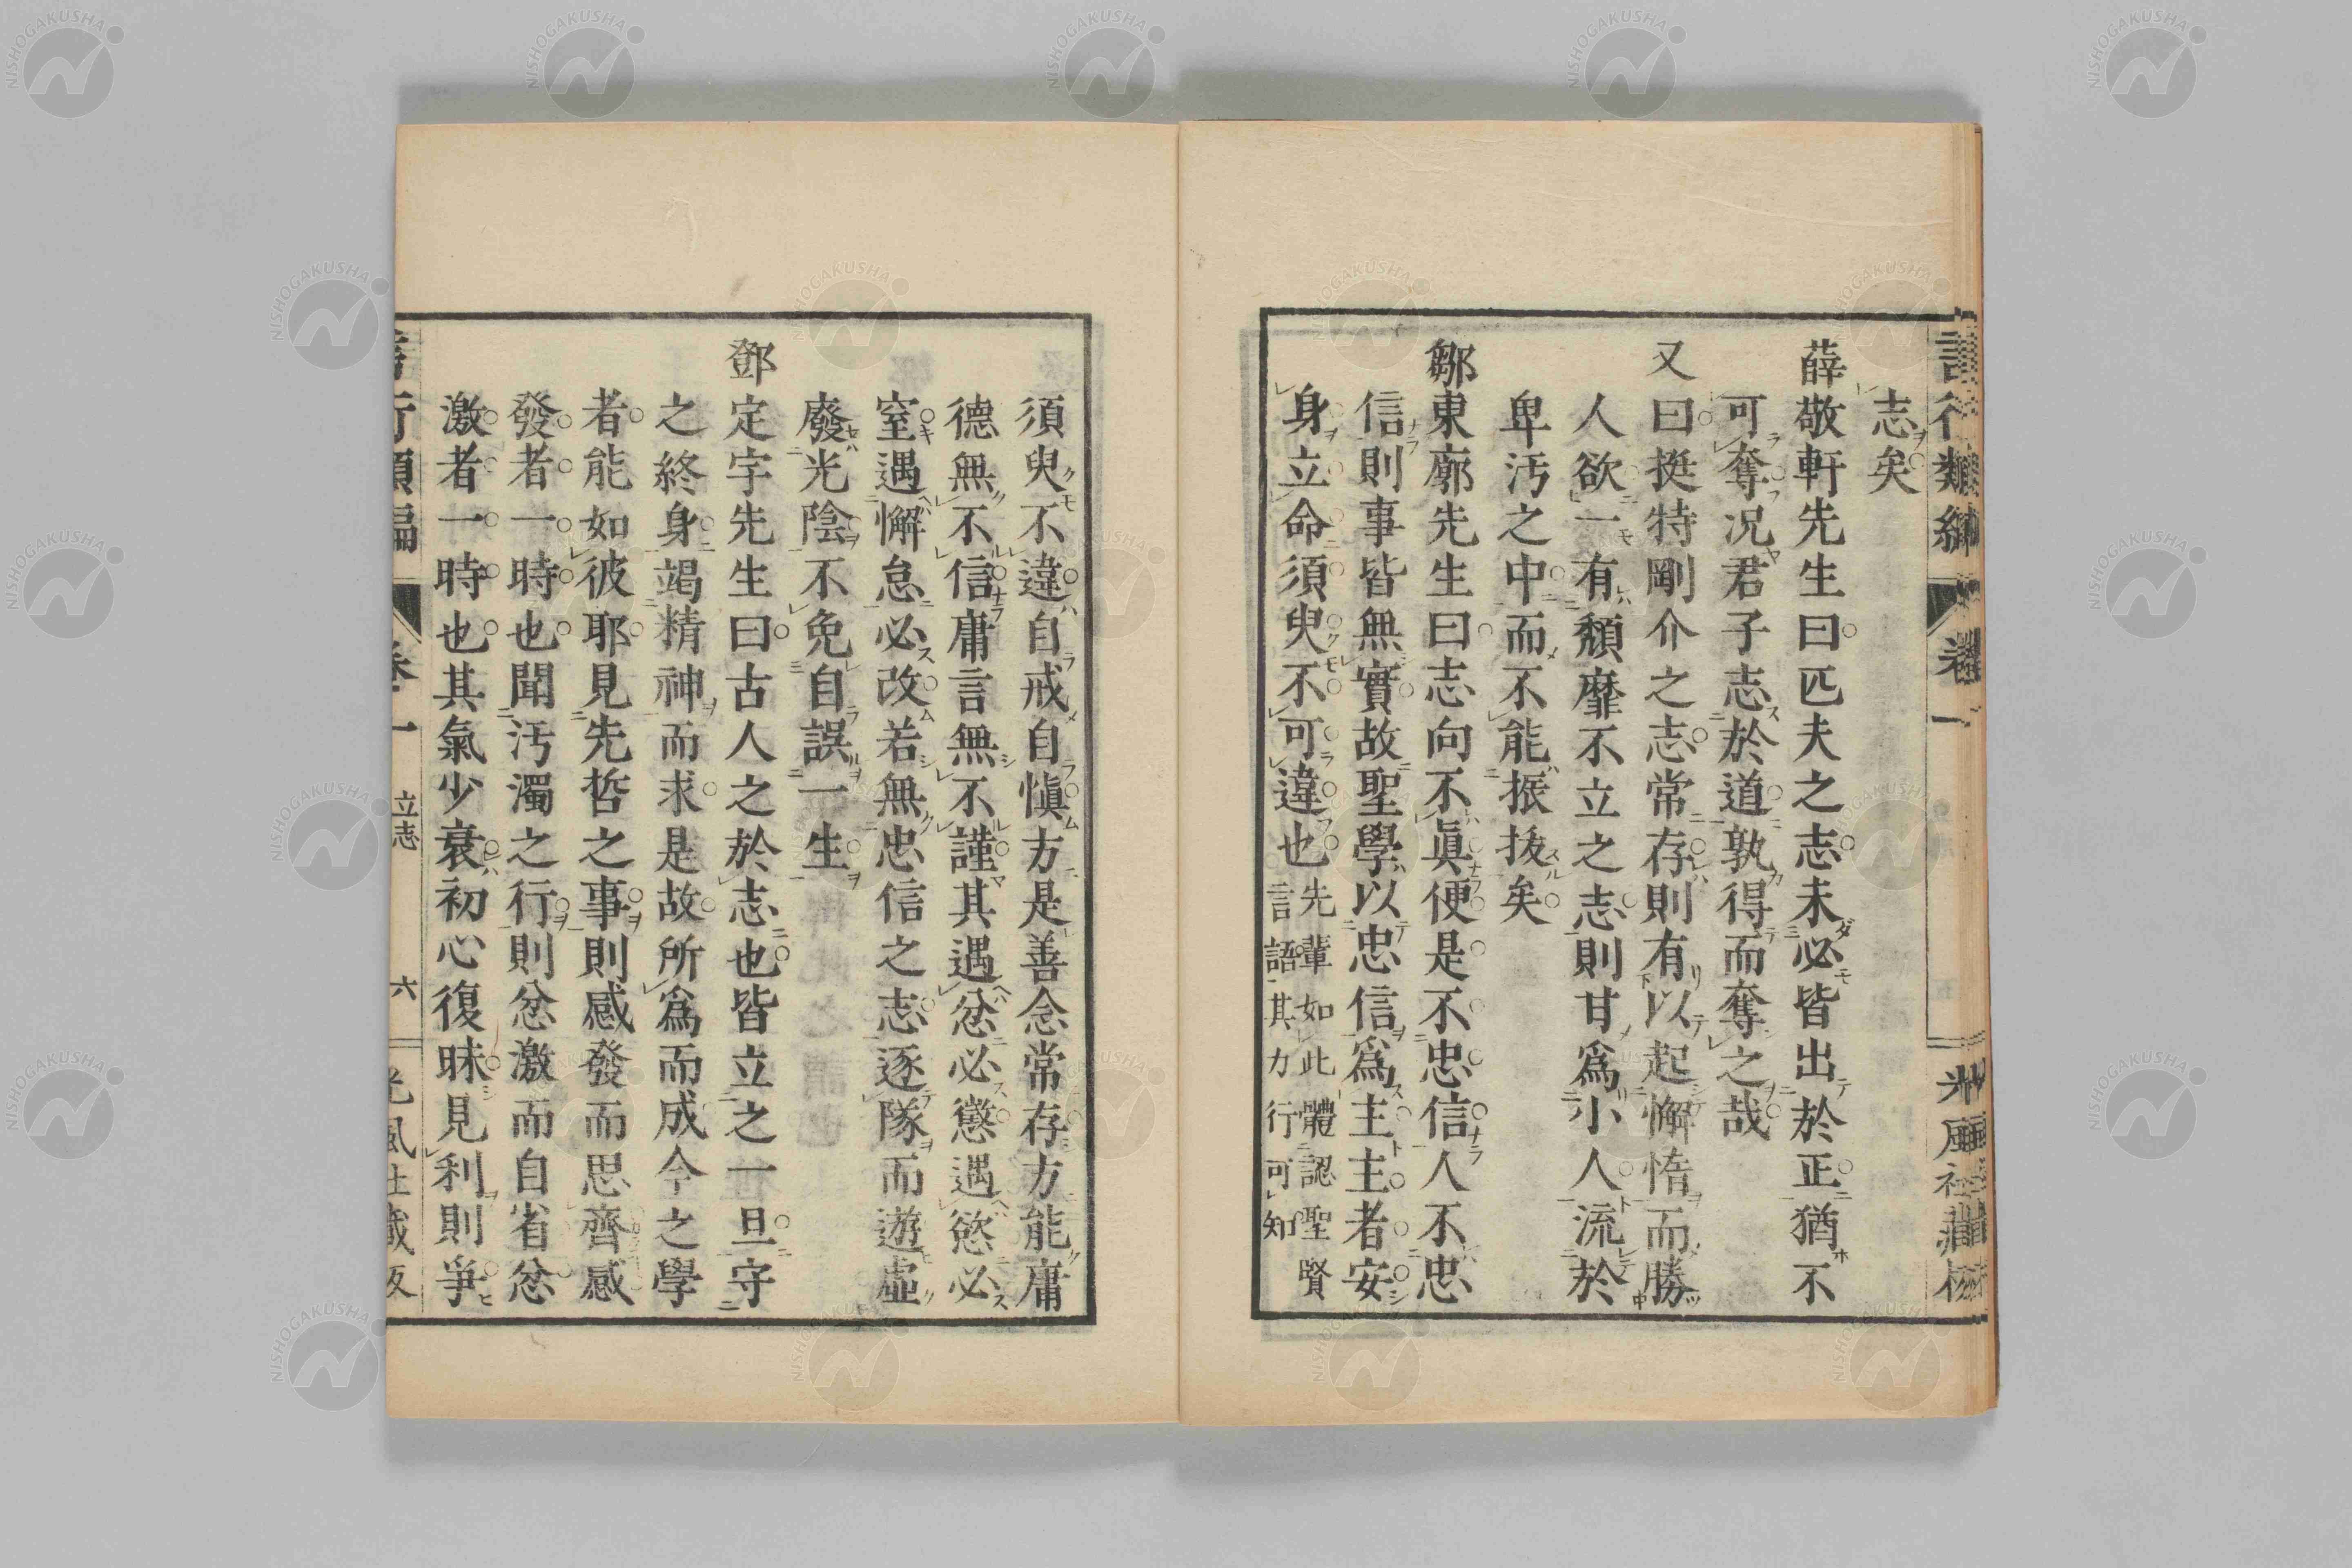 志矣
薛敬軒先生曰匹夫之志未必皆出於正猶不
可奪况君子志於道孰得而奪之哉
又曰挺特剛介之志常存則有以起懈惰而勝
人欲一有頹靡不立之志則甘爲小人流於
卑汚之中而不能振拔矣
鄒東廓先生曰志向不眞便是不忠信人不忠
信則事皆無實故聖學以忠信爲主主者安
身立命須臾不可違也
先輩如此體認聖賢
言語其力行可知
須臾不違自戒自愼方是善念常存方能庸
德無不信庸言無不謹其遇忿必懲遇慾必
窒遇懈怠必改若無忠信之志逐隊而遊虛
廢光陰不免自誤一生
鄧定宇先生曰古人之於志也皆立之一旦守
之終身竭精神而求是故所爲而成今之學
者能如彼耶見先哲之事則感發而思齊感
發者一時也聞汚濁之行則忿激而自省忿
激者一時也其氣少衰初心復昧見利則爭
卷一
立志
六
NISHOGAKUSHA